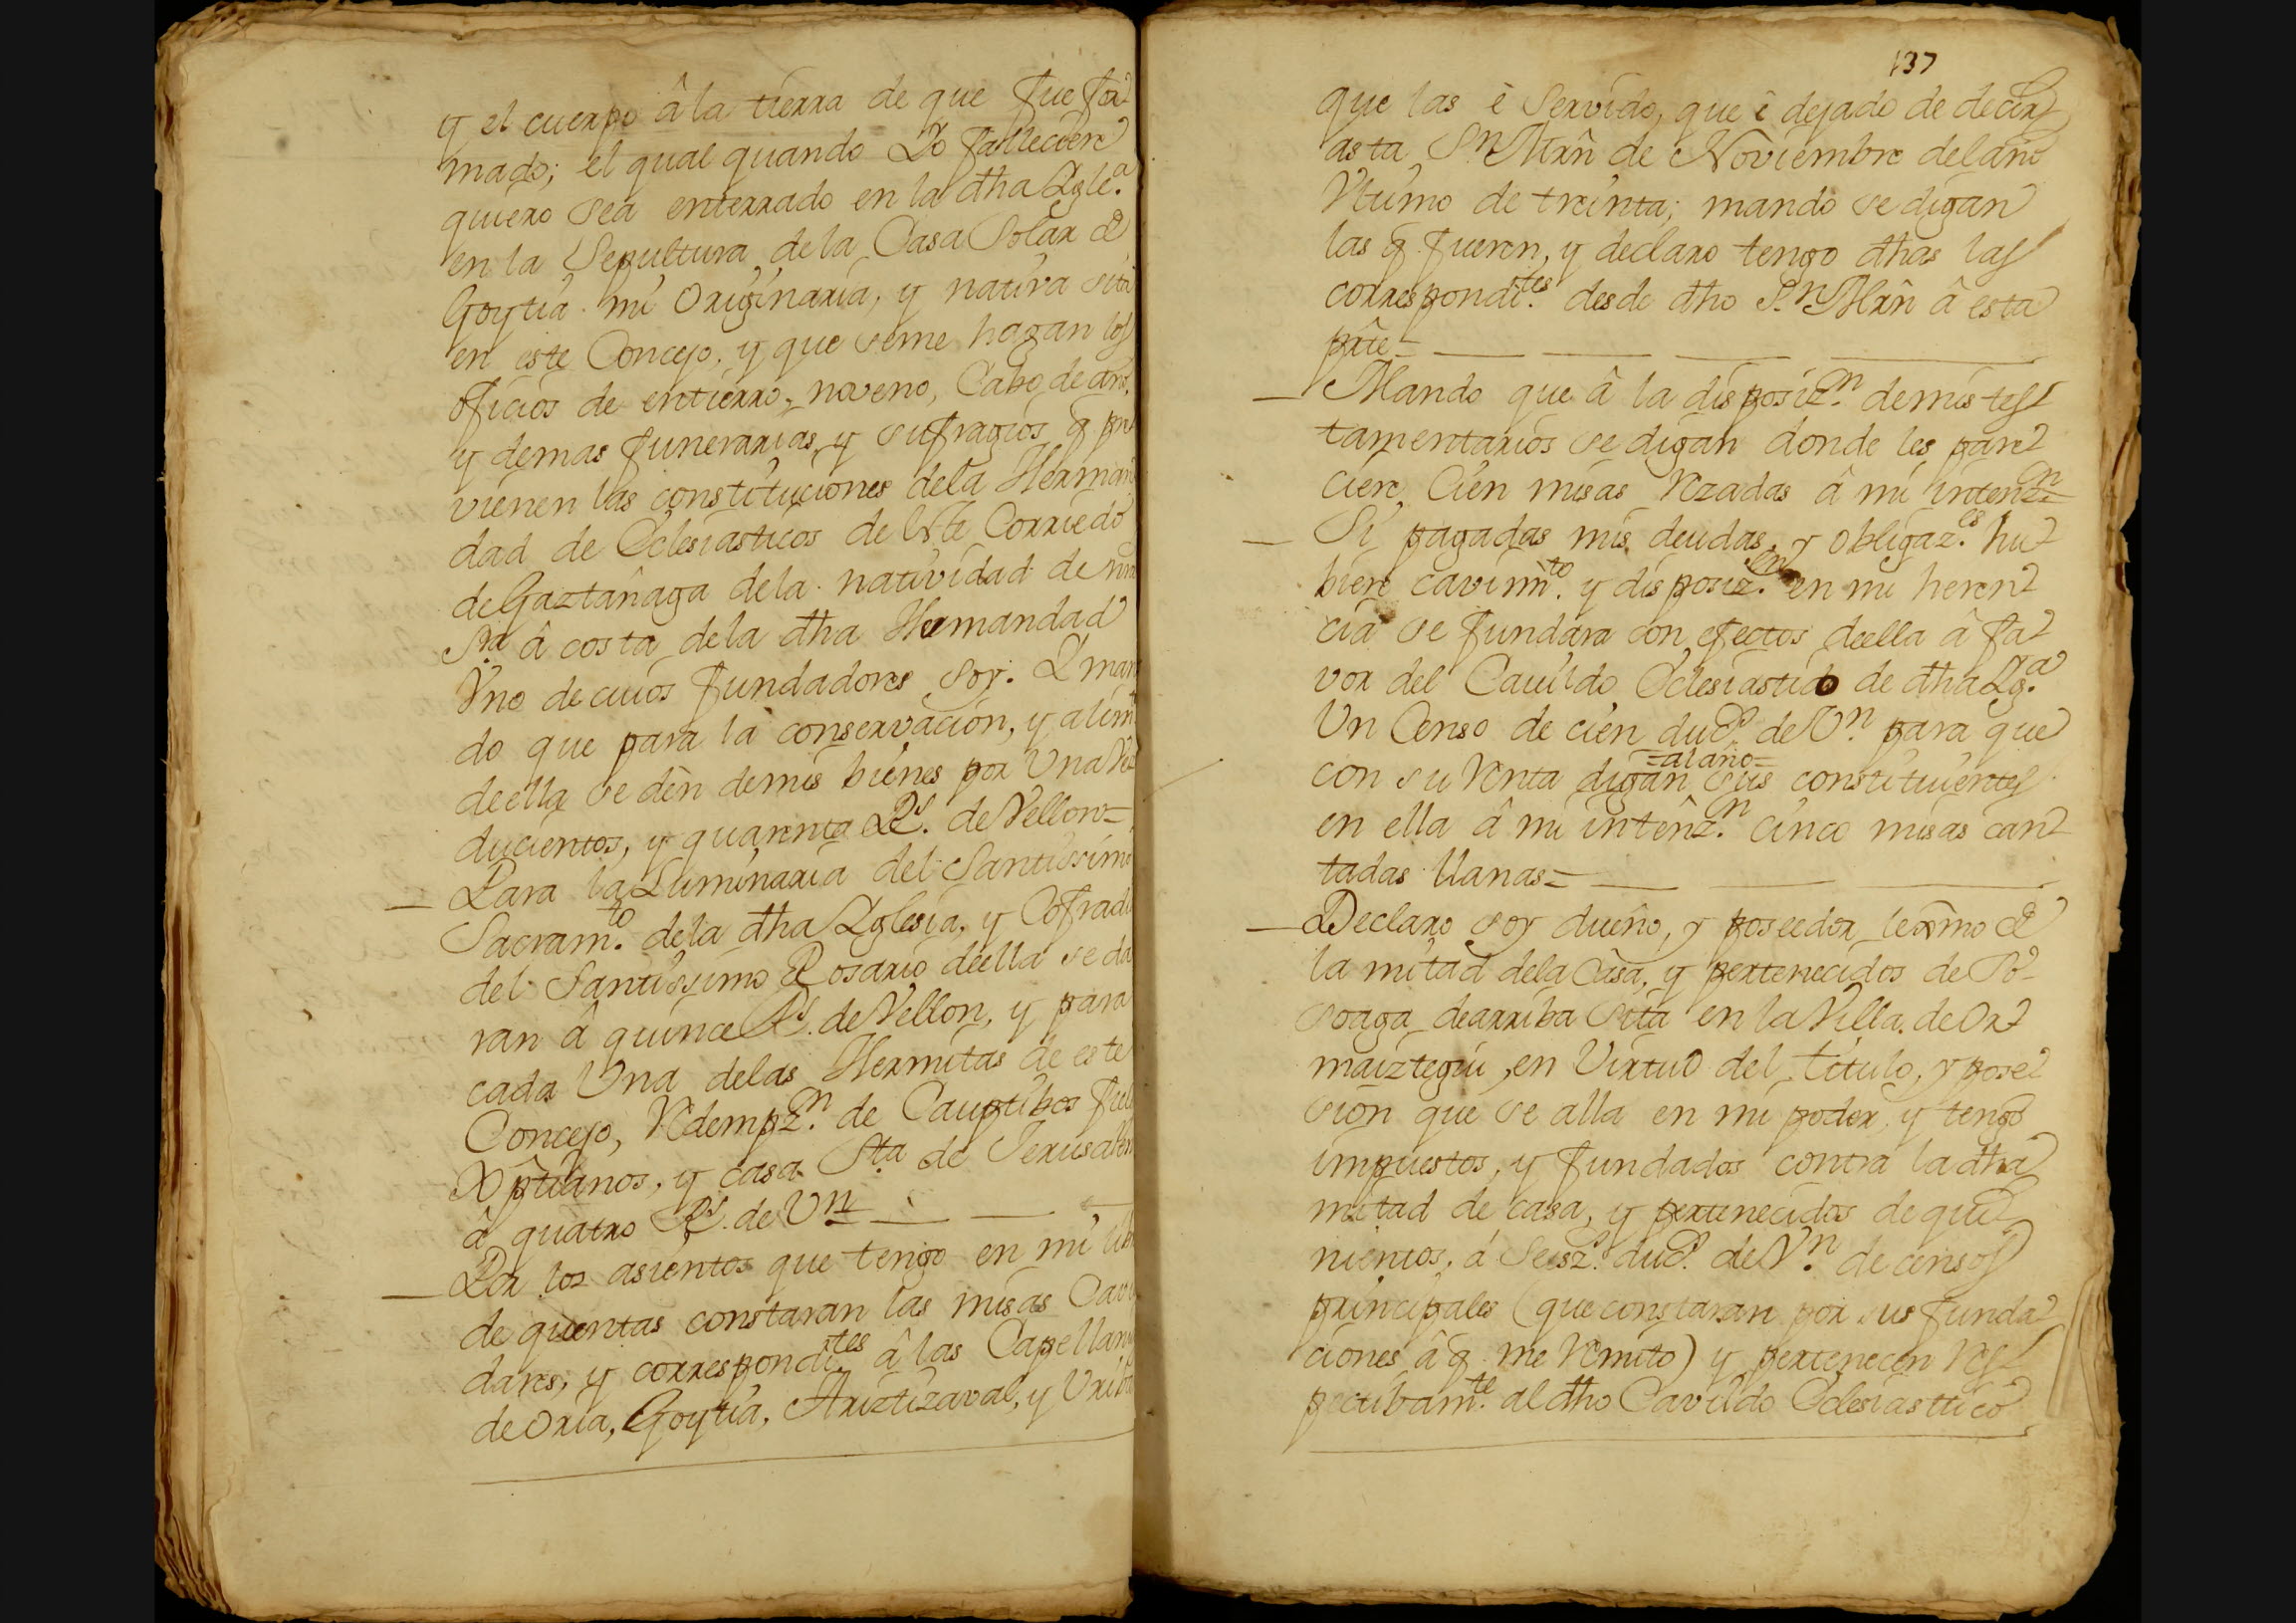 y el cuerpo â la tierra de que fue for
mado; el qual quando Yo falleciere
quiero sea enterrado en la dha Ygle.ª
en la Sepultura de la Casa Solar de
Goytia mi Originaria, y nativa sita
en este Concejo, y que seme hagan los
oficios de entierro, noveno, Cabo de año,
y demas funerarias, y sufragios q̃ pre
vienen las constituciones dela Herman
dad de Eclesiasticos de este Corriedo
de Gaztañaga dela natividad de nra
Sra â costa dela dha Hermandad
Vno de cuios fundadores soy. Y man
do que para la conservación, y alim.to
de ella se dèn demis bienes por Una Vez
ducientos, y quarenta Rs. de Vellon=
Para la Luminaria del Santissimo
Sacram.to dela dha Yglesia, y Cofradia
del Santissimo Rosario deella se da
ran â quince Rs. de Vellon, y para
cada Una delas Hermitas de este
Concejo, Redempz.n de Cauptibos fieles
Xptianos, y casa Sta de Jerusalem
â quatro Rs. de Vn
Por los asientos que tengo en mi libro
de quentas constaran las misas Cavil
dares, y correspondi.tes â las Capellanias
de Oria, Goytia, Ariztizaval, y Uribe
137
que las è Servido, que è dejado de decir
asta Sn Mrñ de Noviembre del año
Vltimo de treinta; mando se digan
las q̃ fueren, y declaro tengo dhas las
correspondi.tes desde dho S.n Mrñ â esta
pr̃te=
Mando que â la disposiz.n demis tes
tamentarios se digan donde les pare
ciere Cien misas Rezadas â mi intenz.n=
Si pagadas mis deudas, y obligaz.es hu
biere cavim.to y disposiz.on en mi heren
cia se fundara con efectos deella â fa
vor del Cauildo Eclesiastico de dha Yg.ª
Un Censo de cien dus. de Vn. para que
=al año=
con su Renta digan sus constituientes
en ella â mi intenz.n cinco misas can
tadas llanas=
Declaro soy dueño, y poseedor lexmo de
la mitad dela Casa, y pertenecidos de So
soaga dearriba sita en la Villa de Or
maiztegui, en Virtud del titulo, y pose
sion que se alla en mi poder, y tengo
impuestos, y fundados contra la dha
mitad de casa, y pertenecidos de qui
nientos, á Seisz.s dus. de Vn. de censos
principales (que constaran por sus funda
ciones â q̃ me Remito) y pertenecen Res
pectibam.te al dho Cavildo Eclesiastico